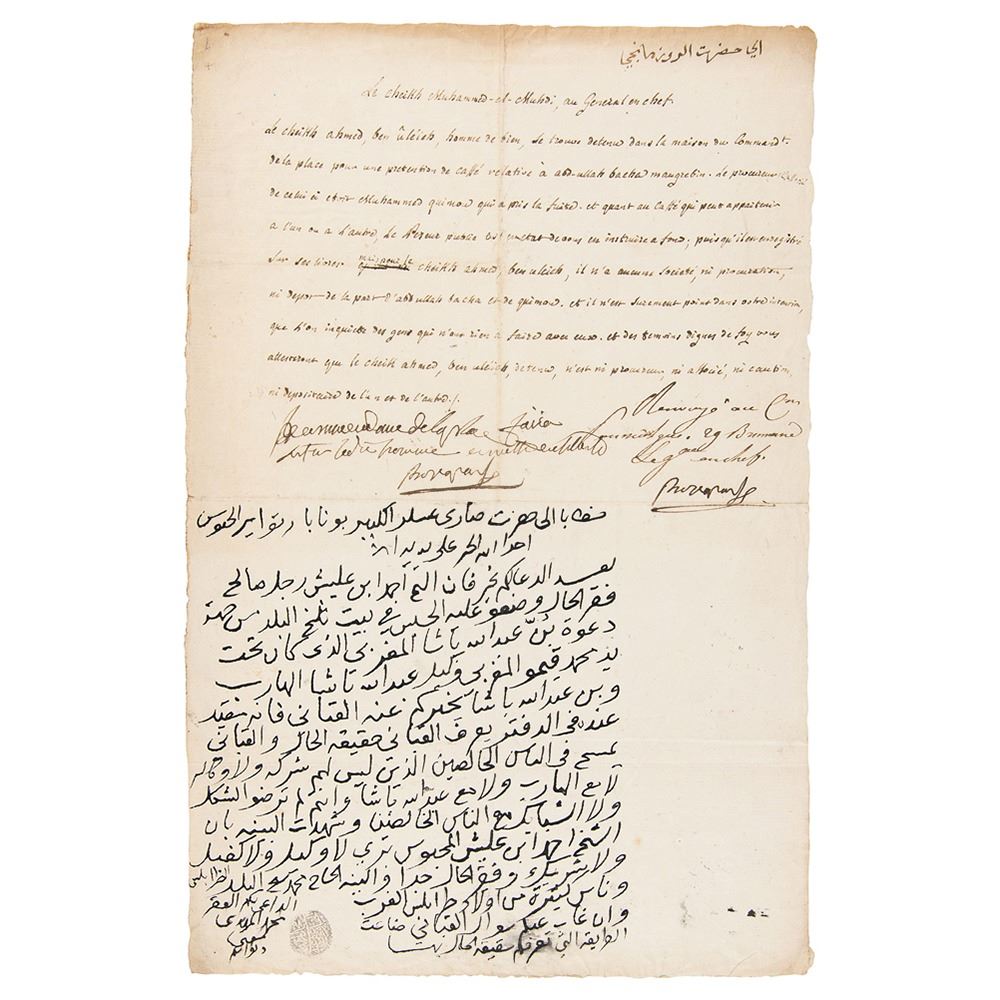 الي حضرت الروزمانجي
Le cheikh Muhammed-el-Muhdi, au General en chef.
Le cheikh ahmed, ben ûleïch, homme de bien, se trouve detenu dans la maison du Commandt.
de la place pour une pretention de caffé relative à abd-ullah bacha maugrebin. Le procureur
de celui ci etoit Muhammed quimou qui a pris la fuite. et quant au caffé qui peut appartenir
a l'un ou a l'autre, le Peseur public est en etat de vous en instruire a fond, puisqu'il en enregistré
sur ses livres. cheikh ahmed, ben uleich, il n'a aucune societé, ni procuration,
ni depot de la part d'abdullah bacha et de quimou. et il n'est surement point dans votre intention,
que l'on inquiette des gens qui n'ont rien a faire avec eux. et des temoins dignes de foy vous
attesteront que le cheikh ahmed, ben uleich, detenu, n'est ni procureur, ni associé, ni caution,
ni depositaire de l'un et de l'autre./.
Renvoyé au
29 Brumaire
Le gal en chef.
Bonaparte
Bonaparte
خطابا الى حضرت صاري عسكر الكبير بونابارته امير الجيوش
بعد الدعا لكم نخبركم فان الشيخ احمد ابن عليش رجل صالح
فقر الحال وضعو عليه الحبس في بيت شيخ البلد من جهة
دعوة بن عبد الله باشا المغربي الذي كان تحت
يد محمد قيمو المغربي وكيل عبد الله باشا الهارب
وبن عبد الله باشا يخبركم عنه القباني فانه مقيد
عنده في الدفتر يعرف القباني حقيقة الحال والقباني
في الناس الخالصين الذين ليس لهم شركه ولا وكاله
لا مع الهارب ولا مع عبد الله باشا وانتم لم ترضو
مع الناس الخالصين وشهدت البينه بان
الشيخ احمد ابن عليش المحبوس بري لا وكيل ولا كفيل
ولا شريك وفقر الحال جدا والبينه الحاج محمد شيخ البلد
وناس كثيرة من اولاد طرابلس الغرب
الداعي لكم الفقير
محمد المهدي